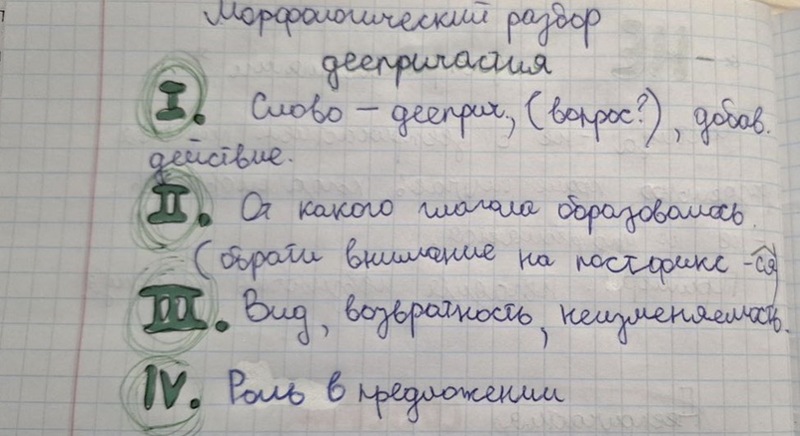 Морфологический разбор
деепричастия
I. Слово – дееприч., (вопрос?), добав.
действие.
II. От какого глагола образовалось.
(обрати внимание на постфикс -ся)
III. Вид, возвратность, неизменяемость.
IV. Роль в предложении